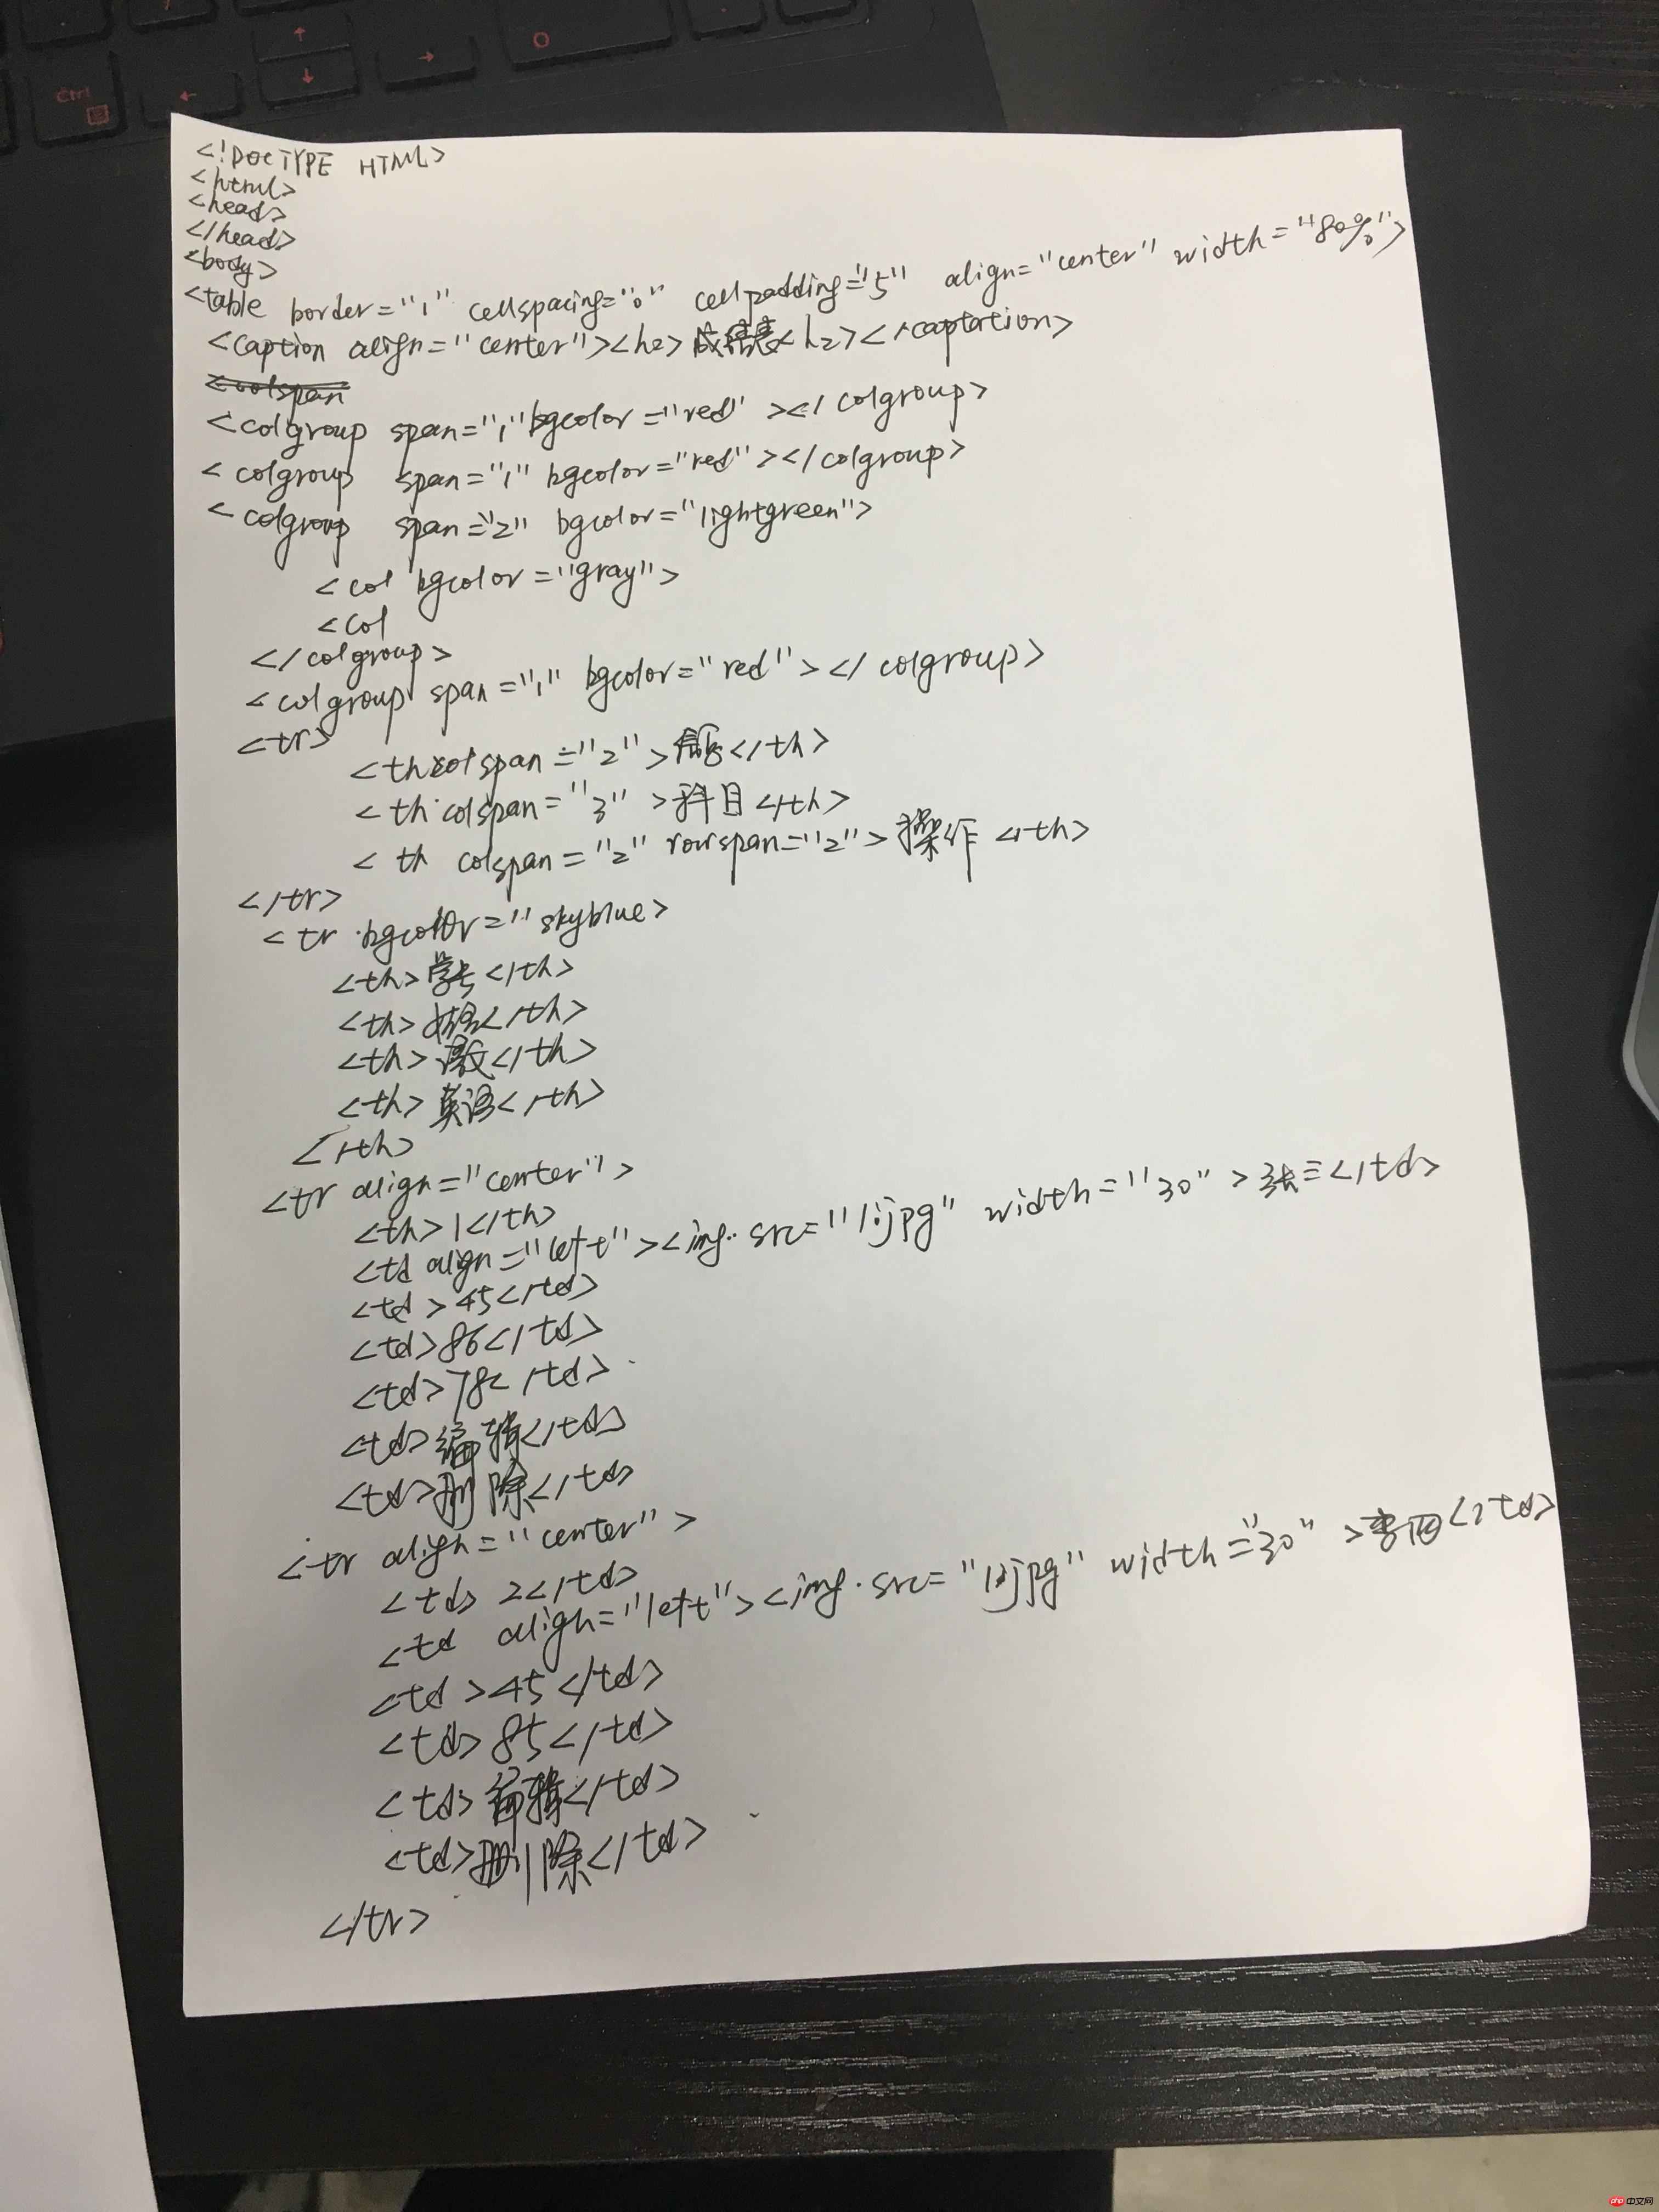 Ctrl
<!DOCTYPE HTML>
<html>
<head>
</head>
<body>
<table border="1" cellspacing="0" cellpadding="5" align="center" width="80%">
<caption align="center"><h2>成绩表<h2></captation>
<colspan
<colgroup span="1" bgcolor="red" ></colgroup>
<colgroup span="1" bgcolor="red"></colgroup>
<colgroup span="2" bgcolor="lightgreen">
<col bgcolor="gray">
<col
</colgroup>
<colgroup span="1" bgcolor="red"></colgroup>
<tr>
<th colspan="2"></th>
<th colspan="3">科目</th>
<th colspan="2" rowspan="2">操作</th>
</tr>
<tr bgcolor="skyblue>
<th>学号</th>
<th>姓名</th>
<th></th>
<th>英语</th>
</th>
<tr align="center">
<th>1</th>
<td align="left"><img src="1.jpg" width="30">张三</td>
<td>45</td>
<td>86</td>
<td>78</td>
<td>编辑</td>
<td>删除</td>
<tr align="center">
<td>2</td>
<td align="left"><img src="1.jpg" width="30">李四</td>
<td>45</td>
<td>85</td>
<td>编辑</td>
<td>删除</td>
</tr>
php 中文网